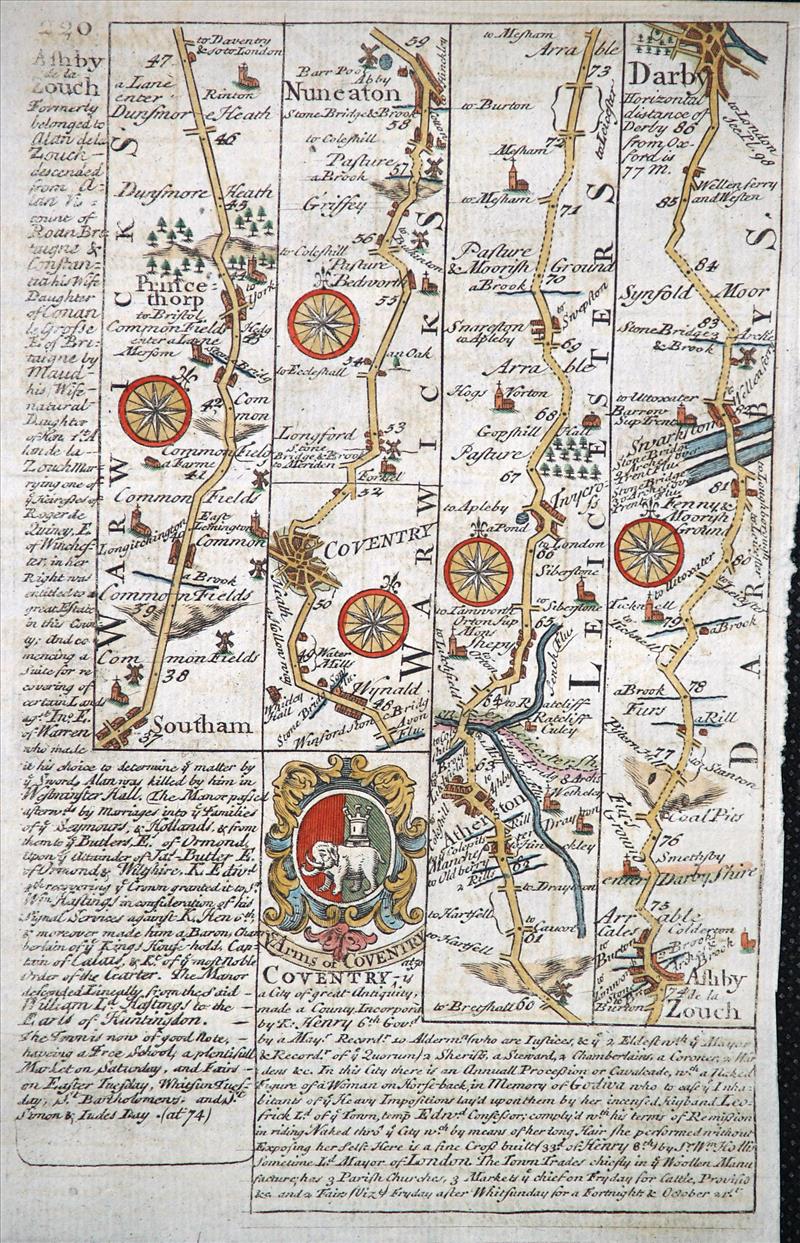 220
Ashby
de la
Zouch
Formerly
belonged to
Alan de la
Zouch
descended
from A-
lan Vi-
count of
Roan Bre
taigne &
Constan-
tia his Wife
Daughter
of Conan
le Grosse
E. of Bri-
taigne by
Maud
his Wife
natural
Daughter
of Hen. 1st. A
lan de la
Zouch Mar
rying one of
ye Heiresses of
Roger de
Quincy, E.
of Winches
ter; in her
Right was
entitled to a
great Estate
in this Coun
ty: And co
mencing a
Suite for re
covering of
certain Lands
agst. Ino. E.
of Warren
who made
it his choice to determin ye matter by
ye Sword, Alan was killed by him in
Westminster Hall. The Manor passed
afterwds by Marriages into ye Families
of ye Seymours, & Hollands, & from
them to ye Butlers E. of Ormond,
Upon ye Attainder of Jas. Butler E.
of Ormond & Wiltshire, K. Edwd.
4th recovering ye Crown granted it to Sr.
Wm. Hastings in consideration of his
Signal Services against K. Hen 6th;
& moreover made him a Baron, Cham
berlain of ye Kings Household, Cap
tain of Calais, & Kt. of ye most Noble
Order of the Garter. The Manor
descended Lineally from the Said
William Ld. Hastings to the
Earls of Huntingdon.
The Town is now of good Note,
having a Free School, a plentifull
Market on Saturday, and Fairs
on Easter Tuesday, Whitsun Tues
day, St. Bartholomews, and St.
Simon & Iudes Day. (at 74)
to Daventry
& so to London
47
a Lane
enter
Rinton
Dunsmore Heath
46
Dunsmore Heath
45
Prince-
thorp
to York
to Bristol
Common Field
enter a Lane
43
Stone Bridg
42
Common
Common Field
a Farme
41
Common Fields
East
Lemington
Longitchington
Common
a Brook
Common Fields
39
Common Fields
38
37
Southam
WARWICKS.
59
to Hinckley
Barr Pool
Abby
Nuneaton
Stone Bridge & Brook
58
to Coleshill
Pasture
a Brook
57
Griffey
56
to Coleshill
Pasture
Bedworth
55
an Oak
54
to Eccleshall
Longford
53
Stone
Bridge & Brook
to Meriden
Foxhel
52
COVENTRY
50
Heath
49
Water
Mills
Whitley
Hall
Stone Bridg
Wynald
48
Winford Stone Bridg
Avon
Flu.
WARWICKS
Arms of COVENTRY
at 50
COVENTRY, is
a City of great Antiquity,
made a County Incorpord
by K. Henry 6th Govd.
by a Mayr. Recordr. 10 Aldermn. (who are Iustices, & ye 2 Eldest wth. ye Mayor
& Recordr. of ye Quorum) 2 Sheriffs, a Steward, 2 Chamberlains, a Coroner, 2 War
dens &c. In this City there is an Annuall Procession or Cavalcade, wth. a Naked
Figure of a Woman on Horse-back, in Memory of Godiva who to ease ye Inha-
bitants of ye Heavy Impositions lay'd upon them by her incens'd Husband Leo-
frick Ld. of ye Town, temp. Edwd. Confessor; comply'd wth. his terms of Remission
in riding Naked thro' ye City wch. by means of her long Hair she performed without
Exposing her Selfe Here is a fine Cross built (33d. of Henry 8th.) by Sr. Wm. Hollis
sometime Ld. Mayor of London. The Town Trades chiefly in ye Woollen Manu
facture; has 3 Parish Churches, 3 Markets ye chief on Fryday for Cattle, Provisio
&c. and 2 Fairs (Viz.) Fryday after Whitsunday for a Fortnight & October 21st.
to Mesham
Arrable
73
to Burton
to Leicester
72
Mesham
to Mesham
71
Pasture
& Moorish Ground
a Brook
70
to Swepston
Snarston
to Apleby
69
Arrable
Hogs Norton
68
Gopshill
Pasture
67
to Apleby
Twycross
a Pond
to London
66
Siberstone
to Tamworth
to Siberstone
Orton Sup
Mons
65
Shepy
Orton
to Lichfield
64
to Ratcliff
Ratcliff
Culey
63
Atherston
Drayton
Manchester
to Oldbery
2 Rills
62
to Drayton
to Hartsell
61
to Hartsell
to Bretshall
60
LEICESTERS
Darby
Horizontal
distance of
Derby 86
from Ox-
ford is
77 M.
to London
See pl. 98
Wellenferry
and Westen
85
84
Synfold Moor
83
Stone Bridge 3 Archs
& Brook
to Uttoxater
Barrow
Sup Trent
82
Swarkston
81
Fenny &
Moorish
Ground
80
to Leicester
to Uttoxater
Ticknell
79
a Brook
a Brook
78
Furs
a Rill
77
to Stanton
Coal Pits
76
Smethsby
enter Darby Shire
75
Arrable
Calderton
to Burton
Brook
Burton
74
Ashby
de la
Zouch
DARBYS.